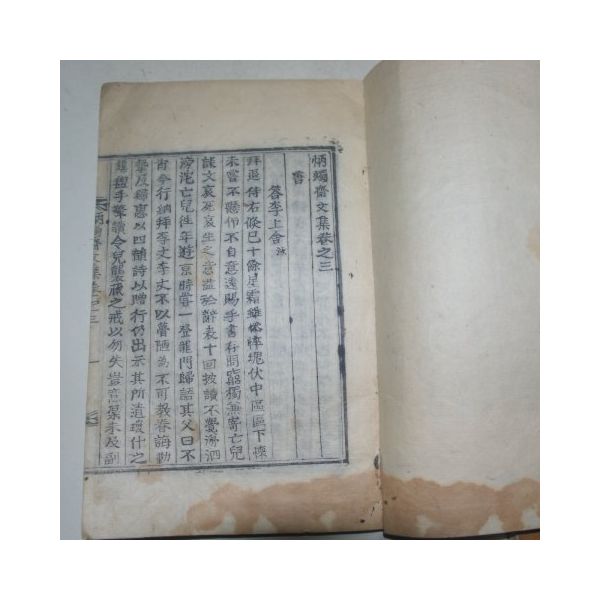 炳燭齋文集卷之三
書
答李上舍 泳
拜退侍右倏已十餘星霜雖伏中區區下懷
未嘗不懸仰不自意遠賜手書存問臨獨兼寄亡兒
誄文哀死哀生之意溢於辭表十回披讀不覺涕泗
滂沱亡兒往年遊京時嘗一登龍門歸語其父曰不
肖今行納拜李丈李丈不以瞢陋為不可敎眷誨勤
摯反歸寵以四韻詩以贈行仍出示其所遺瓊什之
盥手擎讀令兒襲藏之戒以勿失豈意葉未及副
炳燭齋文集卷之三 一